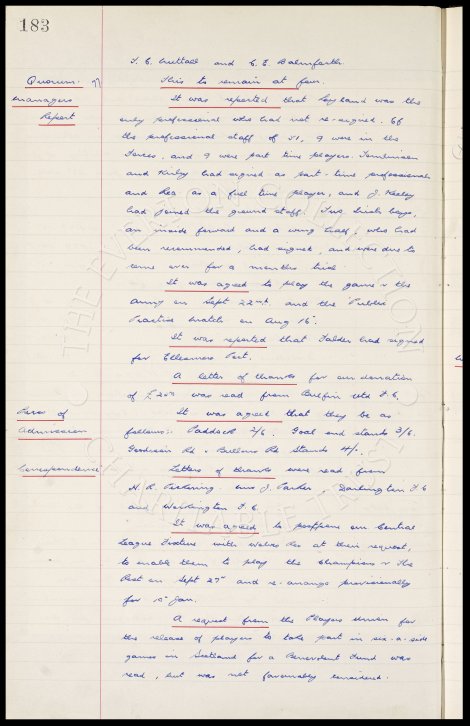 183
T. C. Nuttall and C. E. Balmforth.
Quorum. This to remain at four.
Managers Report It was reported that Leyland was the
only professional who had not re-signed. Of
the professional staff of 51, 9 were in the
Forces, and 9 were part time players. Tomlinson
and Kirby had signed as part-time professionals
and Rea as a full time player, and J. Keeley
had joined the ground staff. Two Irish boys,
an inside forward and a wing half, who had
been recommended, had signed, and were due to
come over for a months trial.
It was agreed to play the game v the
Army on Sept 22nd. and the Public
Practice match on Aug 16.
It was reported that Falder had signed
for Ellesmere Port.
A letter of thanks for our donation
of was read from Belfin Utd F.C.
Prices of Admission It was agreed that they be as
follows:- Paddock 2/6. Goal end stands 3/6.
Goodison Rd & Bullens Rd Stands 4/-.
Correspondence Letters of thanks were read from
H. R. Pickering. Mrs J. Parker. Darlington F.C
and Workington F.C.
It was agreed to postpone our Central
League Fixture with Wolves Res at their request,
to enable them to play the Champions v The
Rest on Sept 27th and re-arrange provisionally
for Jan.
A request from the Players Union for
the release of players to take part in six-a-side
games in Scotland for a Benevolent Fund was
read, but was not favourably considered.
THE EVERTON COLLECTION
CHARITABLE TRUST